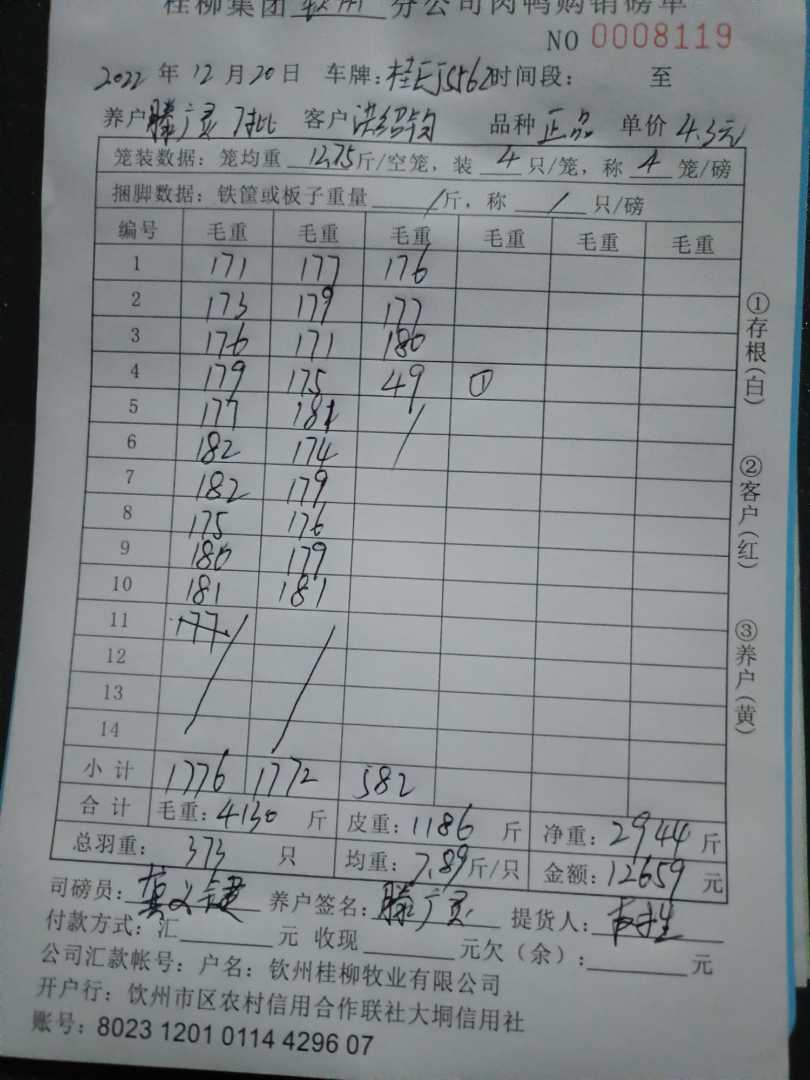 桂柳集团 钦州 分公司肉鸭购销磅单
NO 0008119
2022 年 12 月 20 日 车牌:桂EJ5562 时间段: 至
养户 滕广灵 客户 洪绍钧 品种 正品 单价 4.3元
笼装数据:笼均重 12.75 斤/空笼,装 4 只/笼,称 4 笼/磅
捆脚数据:铁筐或板子重量 / 斤,称 / 只/磅
编号 毛重 毛重 毛重 毛重 毛重 毛重
1 171 177 176
2 173 179 177
3 176 171 180
4 179 175 49 ①
5 177 181 /
6 182 174
7 182 179
8 175 176
9 180 179
10 181 181
11 177
12
13
14
小计 1776 1772 582
合计 毛重:4130 斤 皮重:1186 斤 净重:2944 斤
总羽重: 373 只 均重:7.89 斤/只 金额:12659 元
司磅员: 养户签名:滕广灵 提货人:
付款方式:汇 元 收现 元欠(余): 元
公司汇款帐号:户名:钦州桂柳牧业有限公司
开户行:钦州市区农村信用合作联社大垌信用社
账号:8023 1201 0114 4296 07
①存根(白)
②客户(红)
③养户(黄)